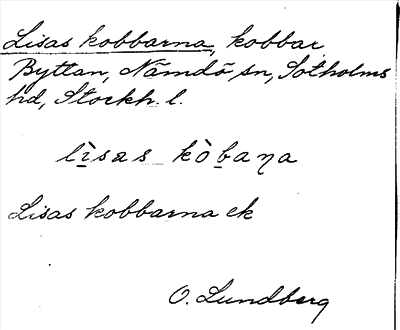 Lisas kobbarna, kobbar
Byttan, Nämdö sn, Sotholms
hd, Stockh. l.
lìsas kòbaṇa
Lisas kobbarna ek
O. Lundberg